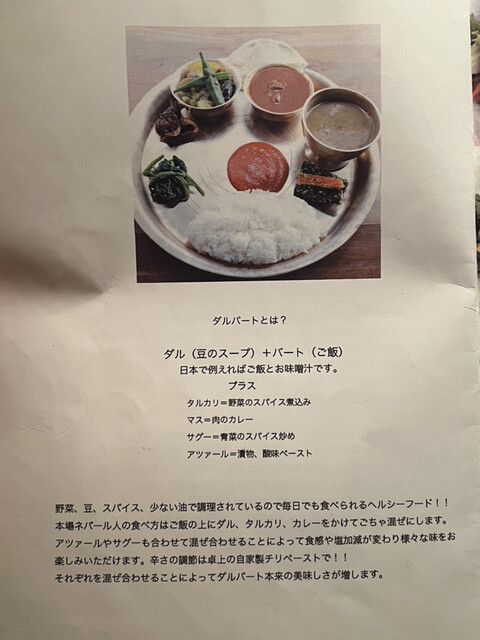 ダルバートとは？
ダル（豆のスープ）＋バート（ご飯）
日本で例えればご飯とお味噌汁です。
プラス
タルカリ＝野菜のスパイス煮込み
マス＝肉のカレー
サグー＝青菜のスパイス炒め
アツァール＝漬物、酸味ペースト
野菜、豆、スパイス、少ない油で調理されているので毎日でも食べられるヘルシーフード！！
本場ネパール人の食べ方はご飯の上にダル、タルカリ、カレーをかけてごちゃ混ぜにします。
アツァールやサグーも合わせて混ぜ合わせることによって食感や塩加減が変わり様々な味をお
楽しみいただけます。辛さの調節は卓上の自家製チリペーストで！！
それぞれを混ぜ合わせることによってダルバート本来の美味しさが増します。